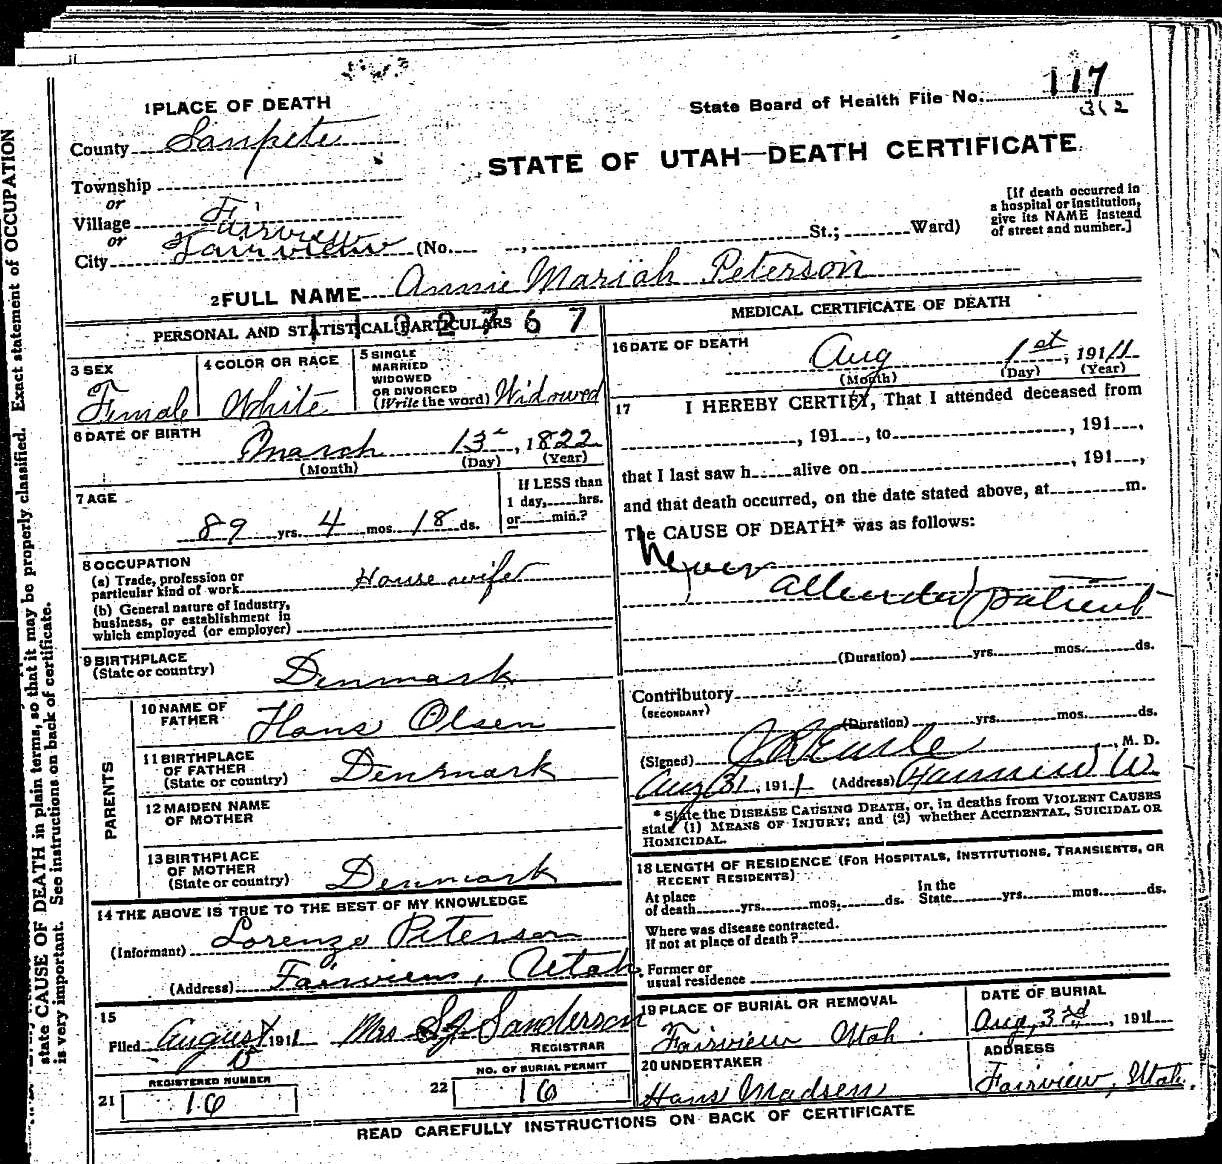 1 PLACE OF DEATH
State Board of Health File No. 117
312
County Sanpete
STATE OF UTAH—DEATH CERTIFICATE
Township
or
Village Fairview
or
City Fairview (No. St.; Ward)
[If death occurred in
a hospital or institution,
give its NAME instead
of street and number.]
2 FULL NAME Annie Mariah Peterson
PERSONAL AND STATISTICAL PARTICULARS
1132767
3 SEX
Female
4 COLOR OR RACE
White
5 SINGLE
MARRIED
WIDOWED
OR DIVORCED
(Write the word) Widowed
6 DATE OF BIRTH
March 13, 1822
(Month) (Day) (Year)
7 AGE
89 yrs. 4 mos. 18 ds.
If LESS than
1 day, hrs.
or min.?
8 OCCUPATION
(a) Trade, profession or
particular kind of work House wife
(b) General nature of industry,
business, or establishment in
which employed (or employer)
9 BIRTHPLACE
(State or country) Denmark
PARENTS
10 NAME OF
FATHER Hans Olsen
11 BIRTHPLACE
OF FATHER
(State or country) Denmark
12 MAIDEN NAME
OF MOTHER
13 BIRTHPLACE
OF MOTHER
(State or country) Denmark
14 THE ABOVE IS TRUE TO THE BEST OF MY KNOWLEDGE
(Informant) Lorenzo Peterson
(Address) Fairview, Utah
15
Filed August 15 1911 Mrs S J Sanderson
REGISTRAR
REGISTERED NUMBER
21 16
NO. OF BURIAL PERMIT
22 16
MEDICAL CERTIFICATE OF DEATH
16 DATE OF DEATH
Aug 1st, 1911
(Month) (Day) (Year)
17 I HEREBY CERTIFY, That I attended deceased from
, 191 , to , 191 ,
that I last saw h alive on , 191 ,
and that death occurred, on the date stated above, at m.
The CAUSE OF DEATH* was as follows:
Never
attended patient
(Duration) yrs. mos. ds.
Contributory
(SECONDARY)
(Duration) yrs. mos. ds.
(Signed) , M. D.
Aug 31, 1911 (Address)
* State the DISEASE CAUSING DEATH, or, in deaths from VIOLENT CAUSES
state (1) MEANS OF INJURY; and (2) whether ACCIDENTAL, SUICIDAL OR
HOMICIDAL.
18 LENGTH OF RESIDENCE (FOR HOSPITALS, INSTITUTIONS, TRANSIENTS, OR
RECENT RESIDENTS)
At place
of death yrs. mos. ds.
In the
State yrs. mos. ds.
Where was disease contracted.
if not at place of death?
Former or
usual residence
19 PLACE OF BURIAL OR REMOVAL
Fairview Utah
DATE OF BURIAL
Aug, 3rd, 1911
20 UNDERTAKER
Hans Madsen
ADDRESS
Fairview, Utah.
READ CAREFULLY INSTRUCTIONS ON BACK OF CERTIFICATE
state CAUSE OF DEATH in plain terms, so that it may be properly classified. Exact statement of OCCUPATION
is very important. See instructions on back of certificate.